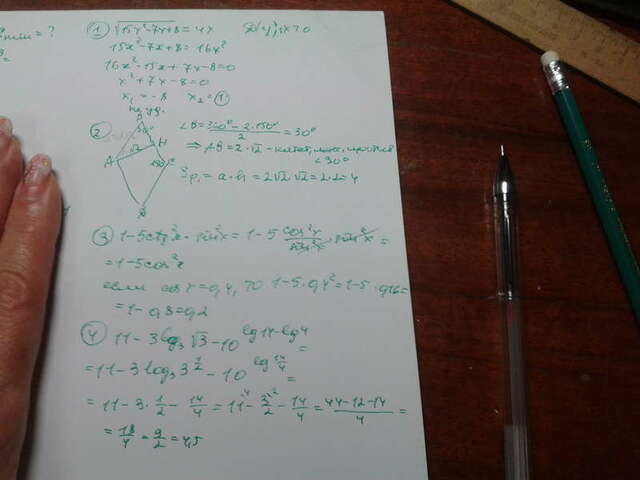 = ?
① √15x²-7x+8 = 4x
15x²-7x+8 = 16x²
16x²-15x+7x-8=0
x²+7x-8=0
x₁=-8 x₂=①
② ∠B = 360°-2·150° / 2 = 30°
⇒ AB = 2·√2 - катет, леж. против ∠30°
Sр. = a·h = 2√2·√2 = 2·2 = 4
B
30°
√2
H
A
150°
C
③ 1-5ctg²x·sin²x = 1-5 cos²x / sin²x · sin²x =
= 1-5cos²x
если cosx=0,4, то 1-5·0,4² = 1-5·0,16=
= 1-0,8=0,2
④ 11-3log₃√3-10^lg14-lg4 =
= 11-3log₃3^1/2 - 10^lg14/4 =
= 11-3·1/2 - 14/4 = 11 - 3/2 - 14/4 = 44-12-14 / 4 =
= 18/4 = 9/2 = 4,5